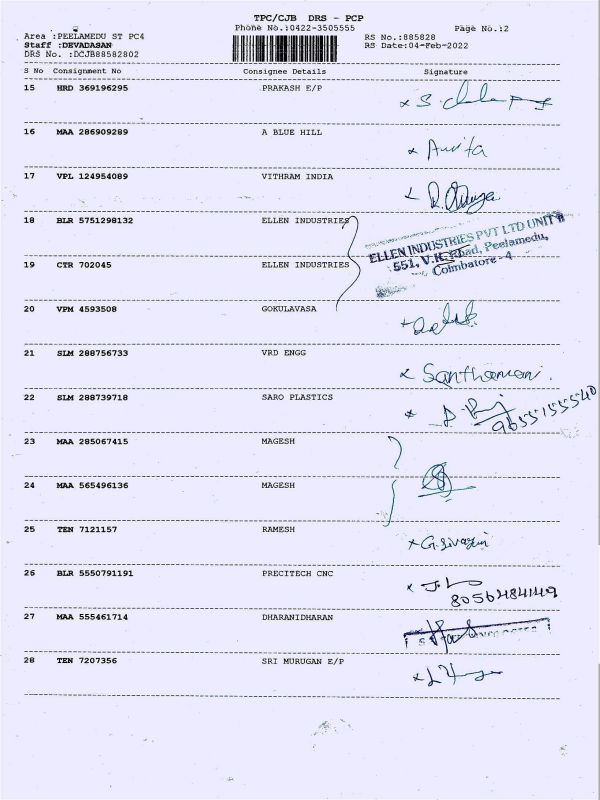 TPC/CJB DRS - PCP
Phone No.:0422-3505555 Page No.:2
Area :PEELAMEDU ST PC4 RS No.:885828
Staff :DEVADASAN RS Date:04-Feb-2022
DRS No. :DCJB88582802
S No Consignment No Consignee Details Signature
15 HRD 369196295 PRAKASH E/P
16 MAA 286909289 A BLUE HILL
17 VPL 124954089 VITHRAM INDIA
18 BLR 5751298132 ELLEN INDUSTRIES
ELLEN INDUSTRIES PVT LTD UNIT II
551, V.K. Road, Peelamedu,
Coimbatore - 4
19 CTR 702045 ELLEN INDUSTRIES
20 VPM 4593508 GOKULAVASA
21 SLM 288756733 VRD ENGG
22 SLM 288739718 SARO PLASTICS
9655155540
23 MAA 285067415 MAGESH
24 MAA 565496136 MAGESH
25 TEN 7121157 RAMESH
26 BLR 5550791191 PRECITECH CNC
8056484149
27 MAA 555461714 DHARANIDHARAN
28 TEN 7207356 SRI MURUGAN E/P